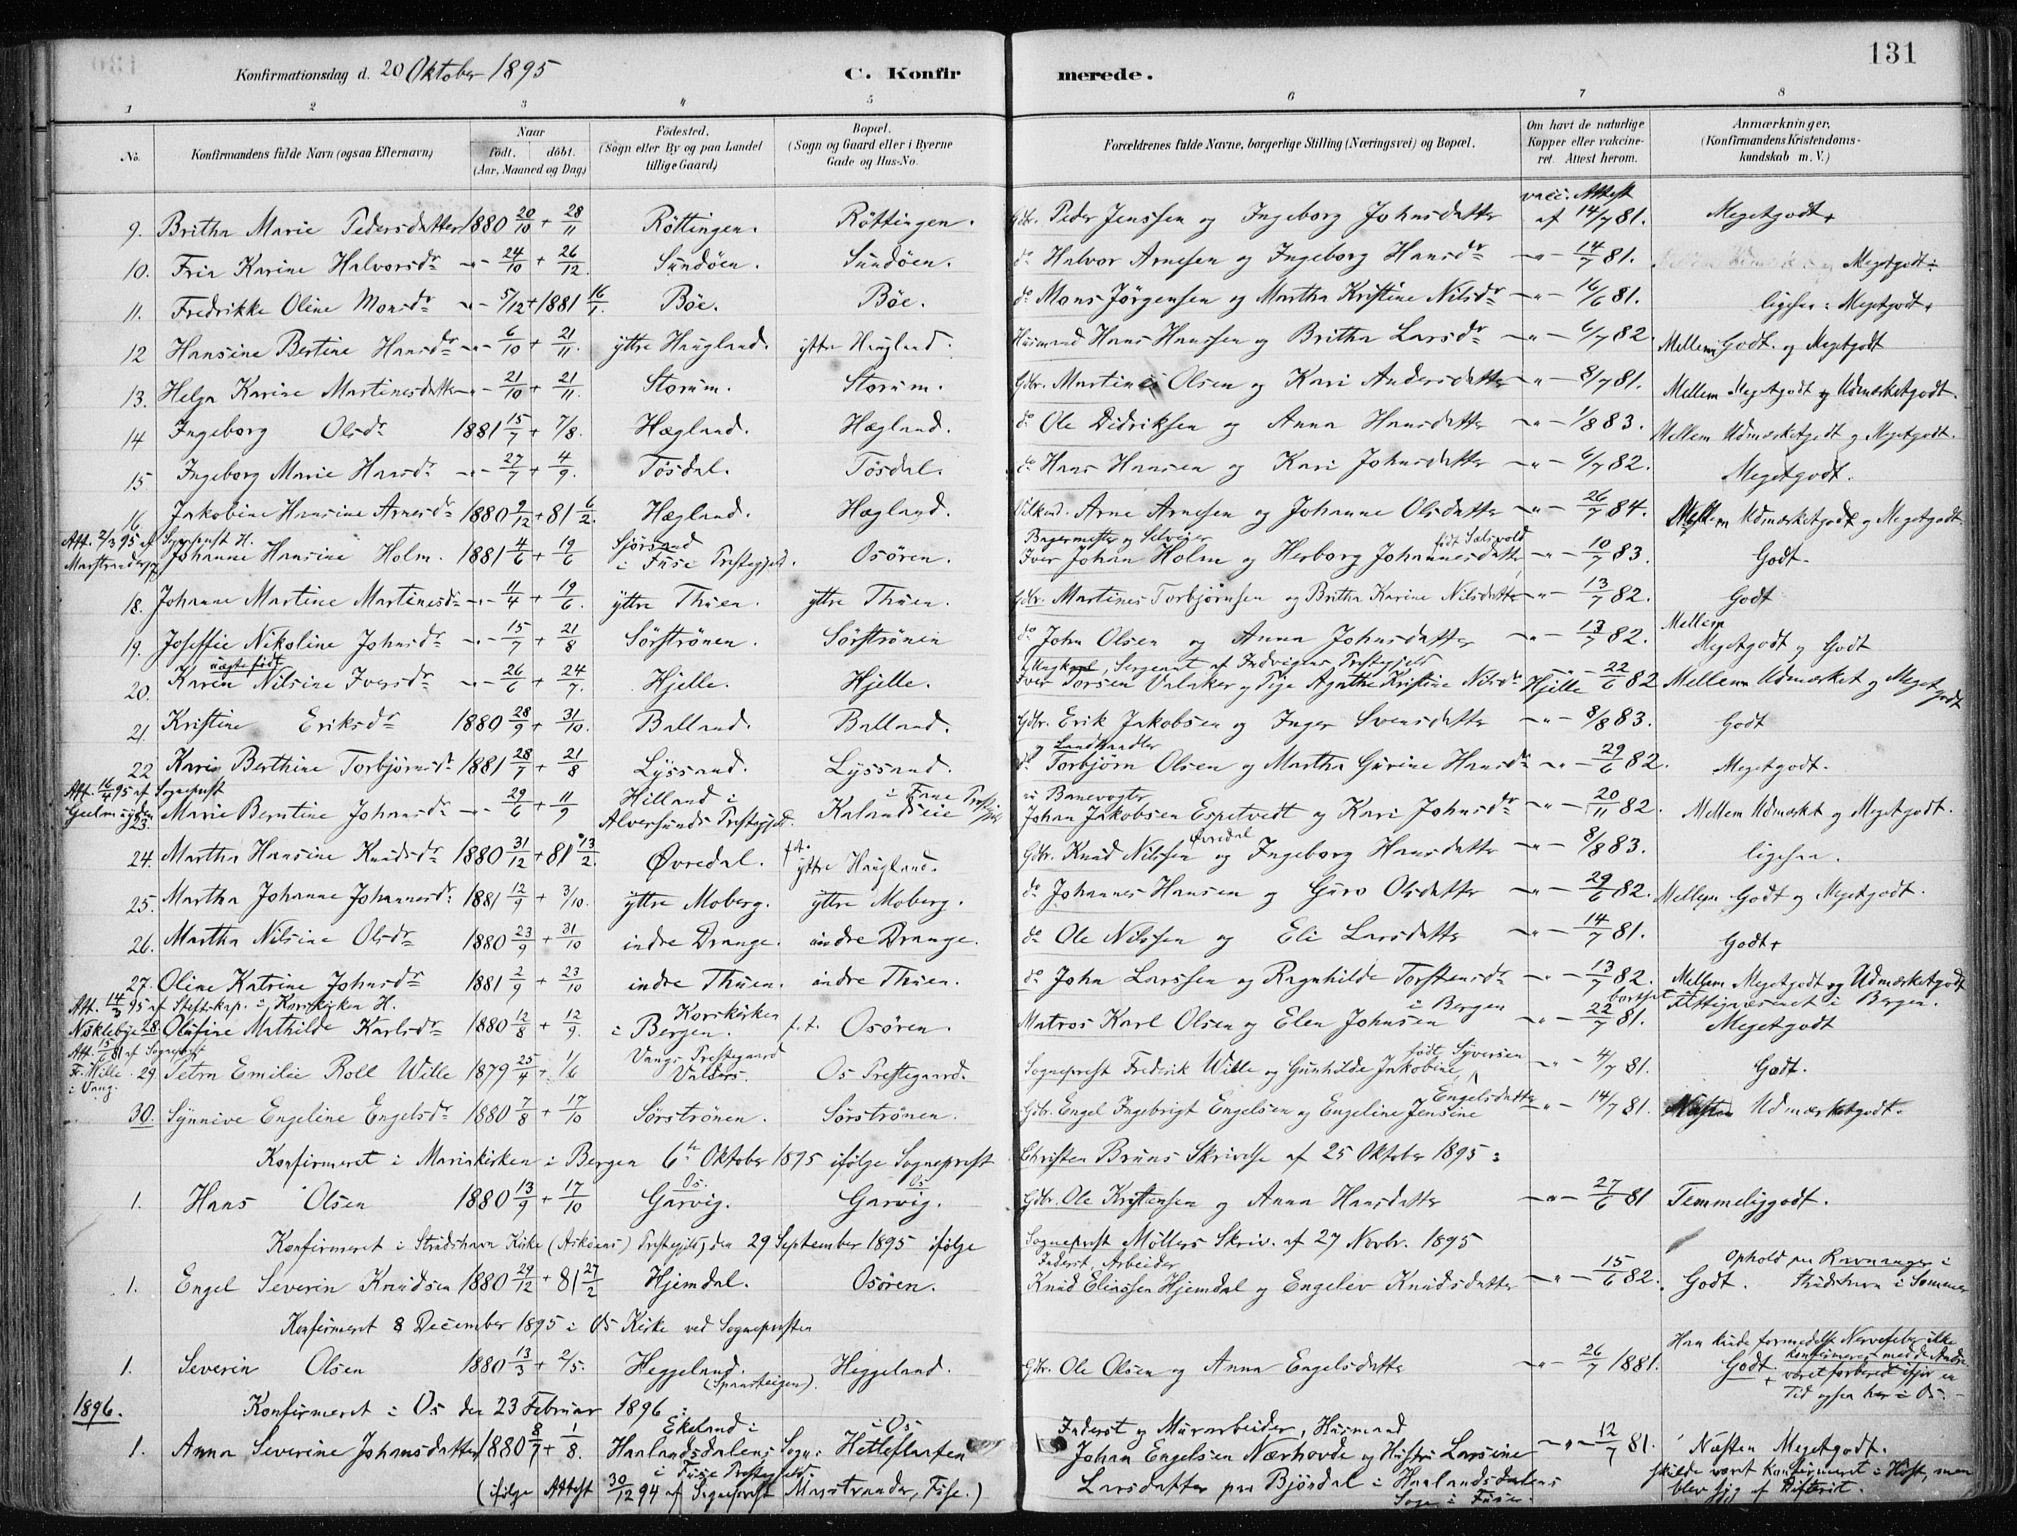 131
Konfirmationsdag d. 20 Oktober 1895 C. Konfirmerede.
1 2 3 4 5 6 7 8
No. Konfirmandens fulde Navn (ogsaa Efternavn) Naar født. døbt. (Aar, Maaned og Dag) Fødested. (Sogn eller By og paa Landet tillige Gaard) Bopæl. (Sogn og Gaard eller i Byerne Gade og Hus-No. Forældrenes fulde Navne, borgerlige Stilling (Næringsvei) og Bopæl. Om havt de naturlige Kopper eller vakcineret. Attest herom. Anmærkninger, (Konfirmandens Kristendomskundskab m. V.)
9. Britha Marie Pedersdatter 1880 20/10 + 28/11 Röttingen. Röttingen. Gdbr. Peder Jenssen og Ingeborg Johnsdatter vacc. Attest af 14/7 81. Megetgodt
10. Halvorsdr 24/10 + 26/12 Sundöen. Sundöen. do Halvor Arnesen og Ingeborg Hansdr 14/7 81. Megetgodt
11. Fredrikke Oline Monsdr 5/12 + 1881 16/1 Böe. Böe. do Mons Jörgensen og Martha Kristine Nilsdr 16/6 81. ligesaa: Megetgodt
12 Hansine Bertine Hansdr 6/10 + 21/11. ýttre Haugland. ýttre Haugland. Husmand Hans Hanssen og Britha Larsdr 6/7 82. Mellem Godt og Megetgodt
13. Helga Karine Martinesdatter 21/10 + 21/11. Storum. Storum. Gdbr. Martines Olsen og Kari Andersdatter 8/7 81. Mellem Megetgodt og Udmærketgodt.
14 Ingeborg Olsdr 1881 15/7 + 7/8. Hægland. Hægland. do Ole Didriksen og Anna Hansdatter 1/8 83. Mellem Udmærketgodt og Megetgodt.
15. Ingeborg Marie Hansdr 27/7 + 4/9. Tösdal. Tösdal. do Hans Hansen og Kari Johnsdatter 6/7 82. Megetgodt.
16. Jakobine Hansine Arnesdr 1880 9/12 + 81 6/2. Hægland. Hægland. Arne Arnesen og Johanne Olsdatter 26/7 84. Mellem Udmærketgodt og Megetgodt
Att. 2/3 95 af Sognepræst H. Marstrander 17 Johanne Hansine Holm. 1881 4/6 + 19/6 Sjörsand i Fuse Præstegjeld. Osören. Bagermester og Selveier Iver Johan Holm og Herborg Johannesdatter født Salsvold 10/7 83. Godt
18. Johanne Martine Martinesdr 11/4 + 19/6. ýttre Thuen. ýttre Thuen. Gdbr. Martines Torbjörnsen og Britha Karine Nilsdatter 13/7 82. Godt
19. Josefie Nikoline Johnsdr 15/7 + 21/8 Sörströnen. Sörströnen do John Olsen og Anna Johnsdatter 13/7 82. Mellem Megetgodt og Godt
20. uægte født Karen Nilsine Iversdr 26/6 + 24/7. Hjelle. Hjelle. Ungkarl, Sergeant af Indvigens Præstegjeld Iver Torsen og Pige Agathe Kristine Nilsdr Hjelle 22/6 82 Mellem Udmærket og Megetgodt
21. Kristine Eriksdr 1880 28/9 + 31/10. Balland. Balland. Gdbr. Erik Jakobsen og Inger Svensdatter 8/8 83. Godt
22 Kari Berthine Torbjörnsdr 1881 28/7 + 21/8 Lyssand. Lyssand. do og Landhandler Torbjörn Olsen og Martha Gurine Hansdr 29/6 82. Megetgodt.
Att. 16/4 95 af Sognepræst Geelmuyden 23. Marie Berntine Johansdr 29/6 + 11/9 Hilland i Alversunds Præstegjeld. Kalandseie i Fane Banevogter Johan Jakobsen Espetvedt og Kari Johnsdr 20/11 82. Mellem Udmærket og Megetgodt.
24. Martha Hansine Knudsdr 1880 31/12 + 81 13/2. Øvredal. f.t. ýttre Haugland. Gdbr. Knud Nilssen Øvredal og Ingeborg Hansdatter 8/8 83. ligesaa.
25. Martha Johanne Johannesdr 1881 12/9 + 3/10. ýttre Moberg. ýttre Moberg. do Johannes Hansen og Guro Olsdatter 29/6 82. Mellem Godt og Megetgodt.
26. Martha Nilsine Olsdr 1880 23/9 + 31/10 indre Drange. indre Drange. do Ole Nilssen og Eli Larsdatter 14/7 81. Godt
27. Oline Katrine Johnsdr 1881 2/9 + 23/10 indre Thuen. indre Thuen. do John Larssen og Ragnhilde Torstensdr 13/7 82. Mellem Megetgodt og Udmærketgodt
Att. 14/3 95 af Stiftskap. i Korskirken H. Nökleby 28. Olufine Mathilde Karlsdr 1880 12/8 + 12/9. Korskirken i Bergen. f.t. Osören. Matros Karl Olsen og Elen Johnsen i Bergen 22/7 81. bortsat Fattigvæsenet i Bergen. Megetgodt
Att. 15/ 81 af Sognepræst Fr. Wille i Vang. 29 Petra Emilie Roll Wille 1879 25/4 + 1/6 Vangs Præstegaard Valders. Os Præstegaard. Sognepræst Fredrik Wille og Gunhilde Jakobine, født Syversen 4/7 81. Godt.
30. Synnive Engeline Engelsdr 1880 7/8 + 17/10 Sörströnen. Sörströnen. Gdbr. Engel Ingebrigt Engelsen og Engeline Jensine Engelsdatter 14/7 81. Næsten Udmærketgodt.
Konfirmeret i Mariakirken i Bergen 6te Oktober 1895 ifølge Sognepræst Christen Bruns Skrivelse af 25 Oktober 1895:
1. Hans Olsen 1880 13/9 + 17/10 Os. Garvig. Os Garvig. Gdbr. Ole Kristensen og Anna Hansdatter 27/6 81 Temmeliggodt.
Konfirmeret i Strudshavn Kirke (Asköens) Præstegjeld, den 29 September 1895 ifølge Sognepræst Möllers Skriv. af 27 Novbr. 1895
1. Engel Severin Knudsen 1880 29/12 + 81 27/2 Hjemdal. Osören. Inderst, Arbeider Knud Eliassen Hjemdal og Engelev Knudsdatter 15/6 82. Godt. Ophold paa i Strudshavn i Sommer
Konfirmeret 8 December 1895 i Os Kirke ved Sognepræsten
1. Severin Olsen 1880 13/3 + 2/5. Heggeland. Heggeland. Gdbr. Ole Olsen og Anna Engelsdatter 26/7 1881. Godt Han kunde formedelst Nervefeber ikke konfirmeres med de Andre været forberedt ifjor en Tid ogsaa her i Os.
1896. Konfirmeret i Os den 23 Februar 1896:
1. Anna Severine Johansdatter 1880 8/7 + 1/8. Ekeland i Haalandsdalens Sogn i Fuse Præstegjeld. i Os Hetleflaaten Inderst og Murarbeider, Husmand Johan Engelsen Nærhovde og Hustru Larsine Larsdatter paa Björdal i Haalandsdalens Sogn i Fuse. 12/7 81. Næsten Megetgodt. skulde været konfirmeret i Höst, men blev syg af Difterit.
(ifølge Attest 30/12 94 af Sognepræst Marstrander, Fuse.)